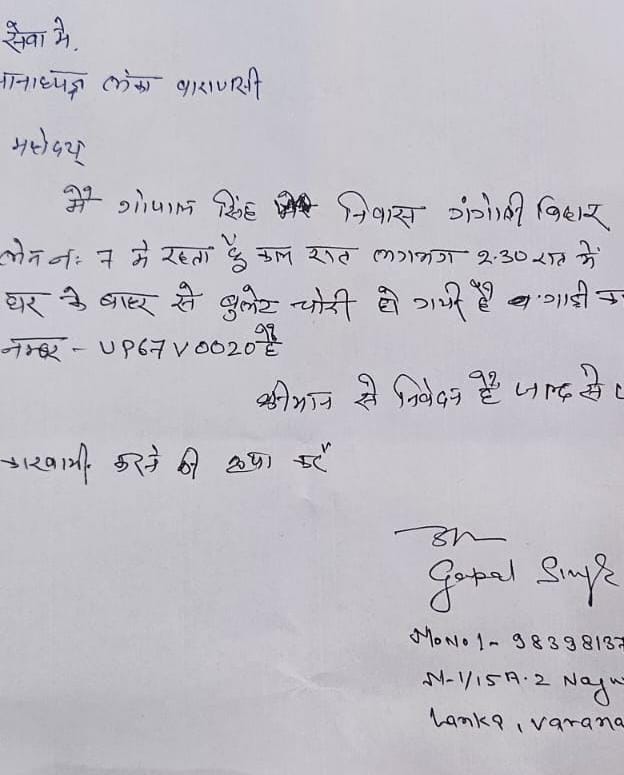 सेवा मे,
थानाध्यक्ष लंका वाराणसी
महोदय
मै गोपाल सिंह निवास गंगोत्री विहार
लेन नं: 7 मे रहता हूँ कल रात लगभग 2.30 रात में
घर के बाहर से बुलेट चोरी हो गयी है गाडी
नम्बर - UP67V0020 है
श्रीमान से निवेदन है जल्द से
कारवाही करने की कृपा करें
Gopal Singh
Mo No 1- 98398137
N-1/15A.2 Nagw
Lanka, Varana